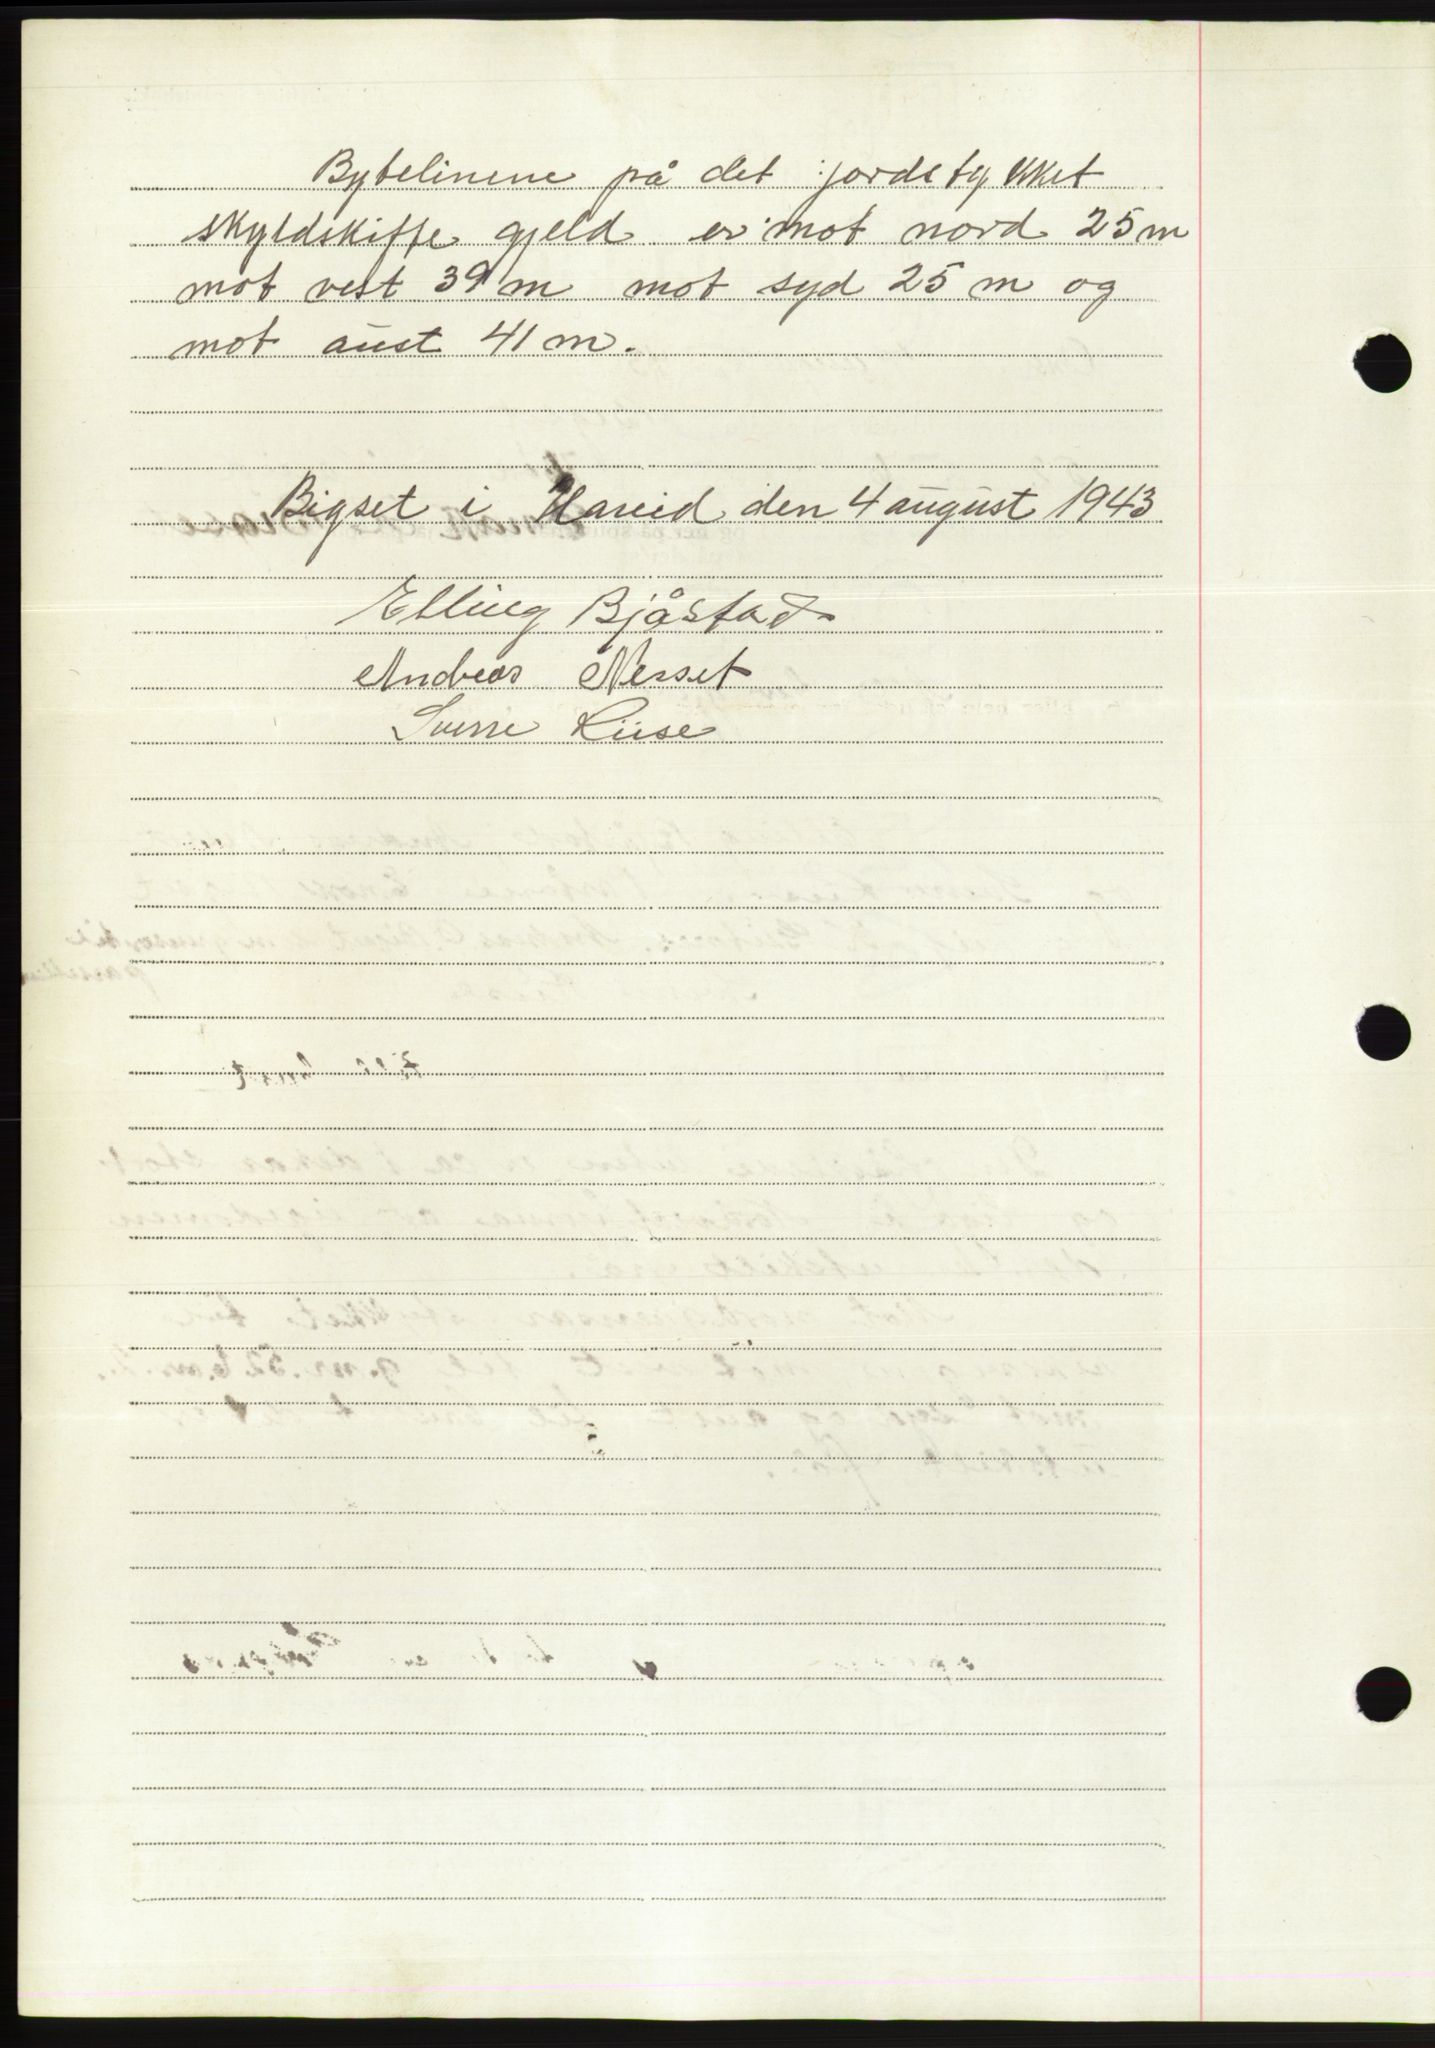 Bytelinene på det jordstykket
skyldskifte gjeld er mot nord 25 m
mot vest 39 m mot syd 25 m og
mot aust 41 m.
Bigset i Hareid den 4 august 1943
Elling Bjåstad
Andreas Nesset
Sverre Liise